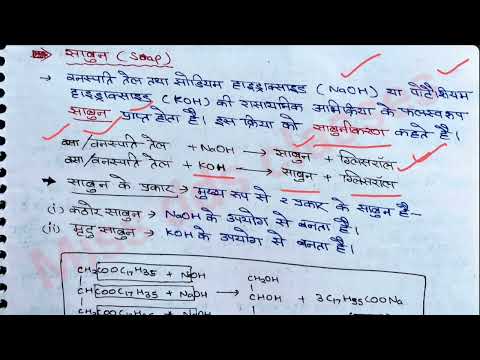 साबुन (Soap)
→ वनस्पति तेल तथा सोडियम हाइड्राक्साइड (NaOH) या पोटैशियम
हाइड्राक्साइड (KOH) की रासायनिक अभिक्रिया के फलस्वरूप
साबुन प्राप्त होता है। इस क्रिया को साबुनीकरण कहते है।
वसा/वनस्पति तेल + NaOH → साबुन + ग्लिसरॉल
वसा/वनस्पति तेल + KOH → साबुन + ग्लिसरॉल
→ साबुन के प्रकार → मुख्य रूप से 2 प्रकार के साबुन है-
(i) कठोर साबुन → NaOH के उपयोग से बनता है।
(ii) मृदु साबुन → KOH के उपयोग से बनता है।
CH₂COOC₁₇H₃₅ + NaOH CH₂OH
CHCOOC₁₇H₃₅ + NaOH → CHOH + 3C₁₇H₃₅COONa